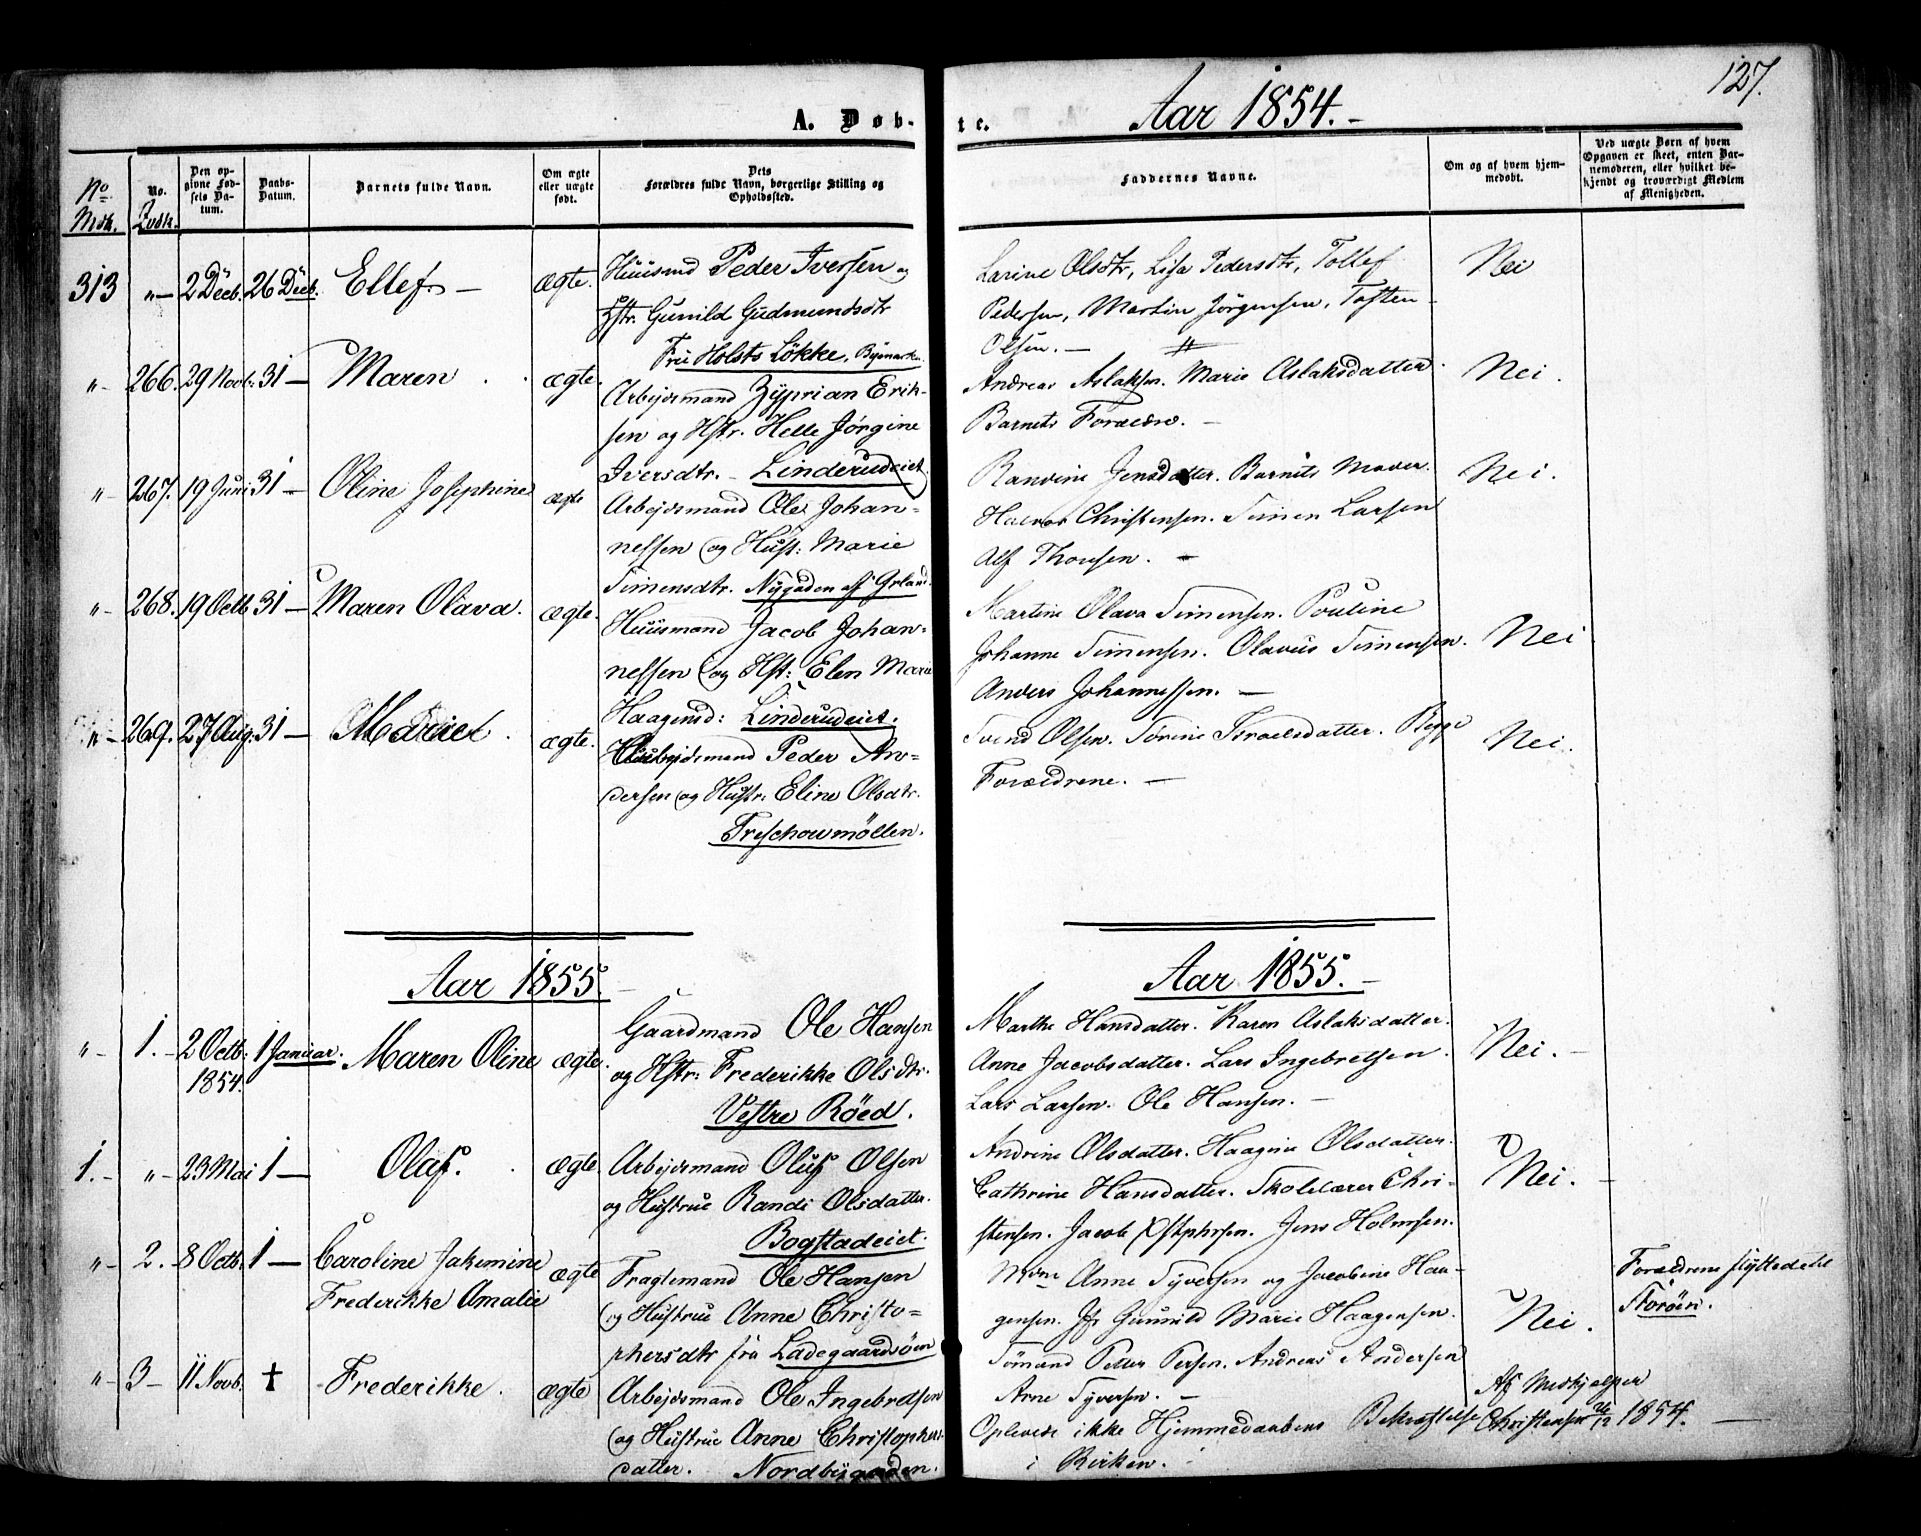 127.
A. Døb-
te.
Aar 1854.-
No. Msk.
No. Qvdk.
Den opgivne Fødsels Datum.
Daabs-Datum.
Barnets fulde Navn.
Om ægte eller uægte født.
Dets Forældres fulde Navn, borgerlige Stilling og Opholdssted.
Faddernes Navne.
Om og af hvem hjemmedøbt.
Ved uægte Børn af hvem Opgaven er skeet, enten Barnemoderen, eller hvilket bekjendt og troværdigt Medlem af Menigheden.
313 "- 2 Decb. 26 Decb. Ellef. - ægte.
Huusmd Peder Iversen og
Hstr. Gunild Gudmundsdtr
Fru Holsts Løkke, Bymarken.
Larine Olsdtr, Lisa Pedersdtr, Tollef
Pedersen, Martin Jörgensen, Tosten
Olsen. -
Nei
"- 266. 29 Novb: 31 - Maren . ægte.
Arbeidsmand Zyprian Erik-
sen og Hstr. Helle Jørgine
Iversdtr. - Linderudeiet.
Andreas Aslaksen. Marie Aslaksdatter.
Barnets Forældre. -
Nei.
"- 267. 19 Juni 31 - Oline Josephine ægte
Arbeidsmand Ole Johan=
nessen og Hust: Marie
Simensdtr. Nygaden af Grland.
Ranvine Jensdatter. Barnets Moder.
Halvor Christensen. Simen Larsen
Alf Thorsen. -
Nei.
"- 268. 19 Octb 31 - Maren Olava. ægte.
Huusmand Jacob Johan=
nessen og Hst: Elen Marie
Haagensd: Linderudeiet.
Martine Olava Simensen. Pouline
Johanne Simensen. Olavus Simensen.
Anders Johannessen. -
Nei
"- 269. 27 Aug. 31 - ægte.
Arbeidsmand Peder An=
dersen og Hustr: Eline Olsdtr.
Treschowmöllen.
Svend Olsen. Sørine Israelsdatter. Begge
Forældrene. -
Nei.
Aar 1855. -
Aar 1855. -
"- 1. - 2 Octb: 1854. 1 Januar. Maren Oline ægte.
Gaardmand Ole Hansen
og Hstr: Frederikke Olsdtr.
Vestre Röed.
Marthe Hansdatter. Karen Aslaksdatter.
Anne Jacobsdatter. Lars Ingebretsen.
Lars Larsen. Ole Hansen. -
Nei. -
1. - "- 23 Mai 1 - Olaf. . ægte.
Arbeidsmand Oluf Olsen
og Hustrue Randi Olsdatter.
Bogstadeiet.
Andrine Olsdatter. Haagine Olsdatter.
Cathrine Hansdatter. Skolelærer Chri-
stensen. Jacob Xstphrsen. Jens Holmsen.
Nei. -
"- 2. 8 Octb. 1 - Caroline Jakemine
Frederikke Amalie ægte
Fragtemand Ole Hansen
og Hustrue Anne Christo=
phersdtr fra Ladegaardsøen
Anne Syversen og Jacobine Haa-
gensen. Jfr Gunnild Marie Haagensen.
Sömand Petter Persen. Andreas Andersen
Arne Syversen. -
Nei.
Forældrene flyttede til
Storöen.
"- 3 - 11 Novb. † Frederikke. ægte
Arbeidsmand Ole Ingebretsen
og Hustrue Anne Christophers-
datter. Nordbygaden.
Oplevede ikke Hjemmedaabens Bekræftelse
i Kirken.
Af Medhjelper
Christensen 26/12 1854. -